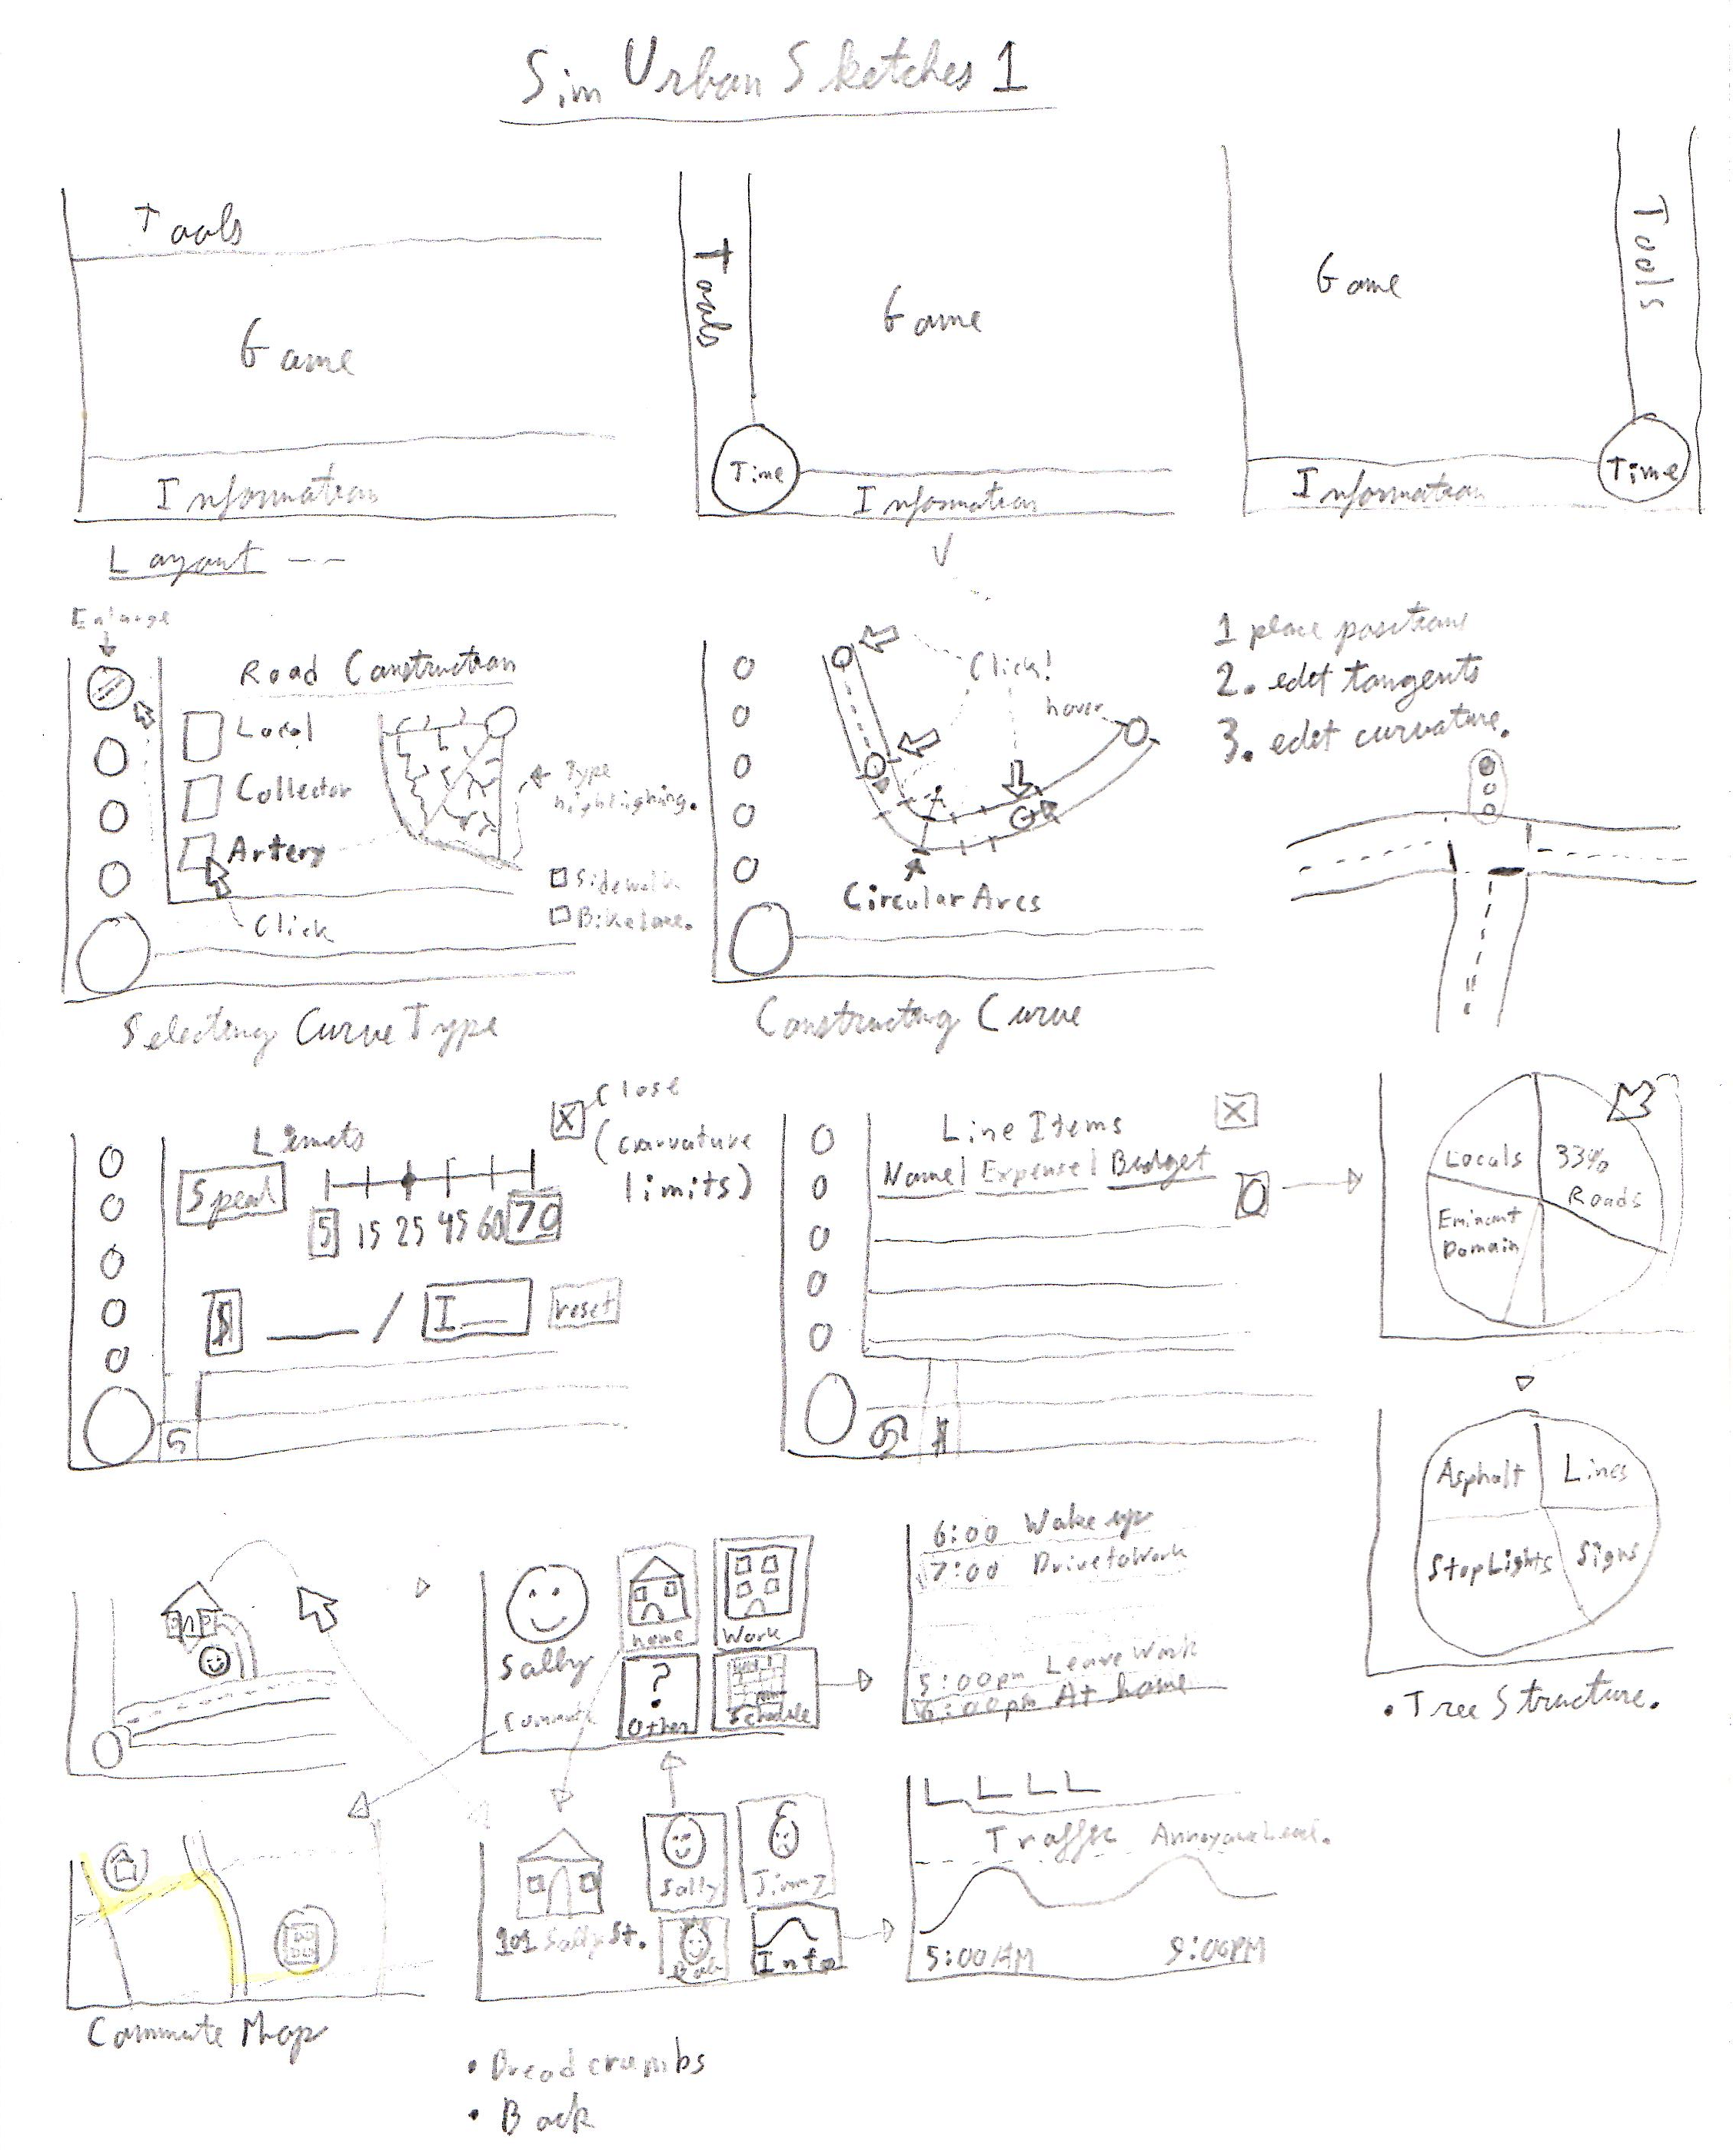 Sim Urban Sketches 1
Tools
Game
Information
Tools
Game
Time
Information
Game
Tools
Information
Time
Layout
Enlarge
Road Construction
Local
Collector
Artery
Click
Type
highlighing.
Sidewalk
Bikelane.
Selecting Curve Type
Click!
hover
Circular Arcs
Constructing Curve
1 place positions
2. edit tangents
3. edit curvature.
Limits
X
Close
(curvature
limits)
Speed
5 15 25 45 60 70
$ / I
reset
5
Line Items
X
Name| Expense| Budget
$
Locals
33%
Roads
Eminent
Domain
Asphalt
Lines
StopLights
Signs
• Tree Structure.
Sally
Commute
home
Work
?
Other
Schedule
6:00 Wake up
7:00 Drive to Work
5:00pm Leave Work
6:00pm At home
Commute Map
101 Sally St.
Sally
Jimmy
Info
Traffic
Annoyance Level.
5:00AM
9:00PM
• Breadcrumbs
• Back